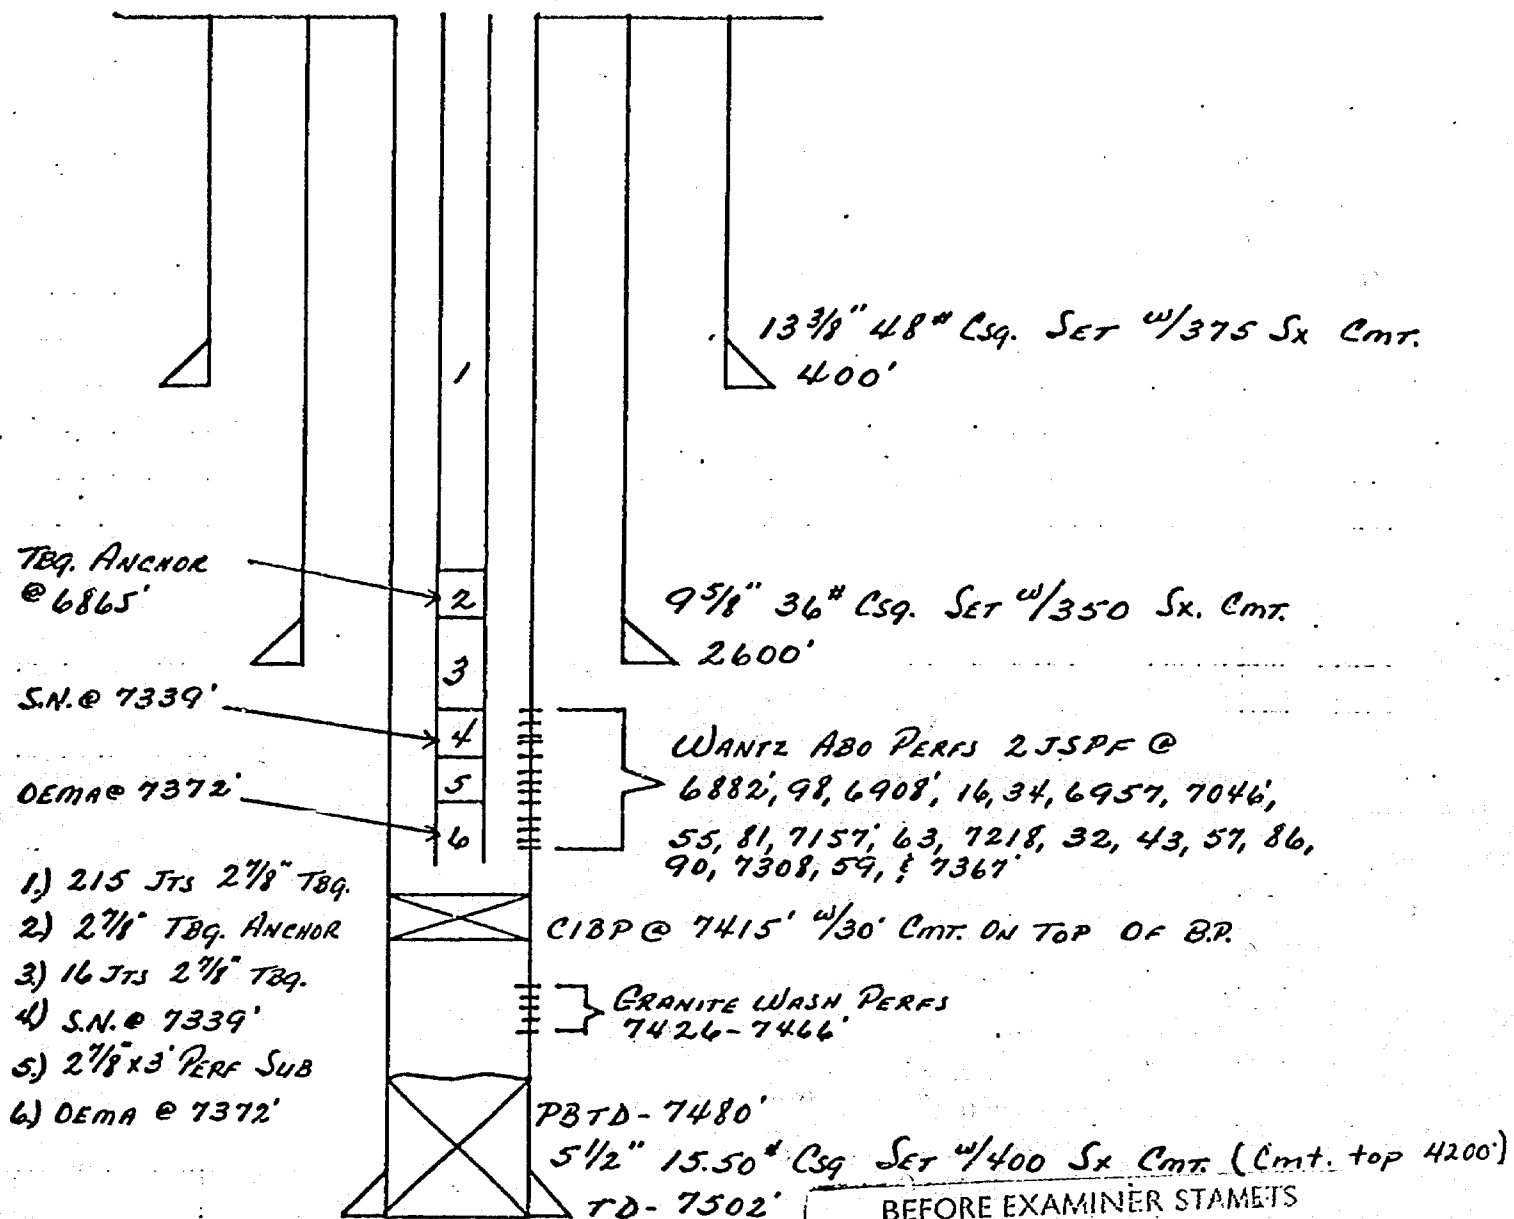 13 3/8" 48# Csg. Set w/375 Sx Cmt.
400'
1
Tbg. Anchor
@ 6865'
2
9 5/8" 36# Csg. Set w/350 Sx. Cmt.
2600'
3
S.N. @ 7339'
4
Wantz Abo Perfs 2 JSPF @
6882', 98, 6908', 16, 34, 6957, 7046',
55, 81, 7157', 63, 7218, 32, 43, 57, 86,
90, 7308, 59, & 7367'
5
OEMA @ 7372'
6
1.) 215 Jts 2 7/8" Tbg.
2) 2 7/8" Tbg. Anchor
3.) 16 Jts 2 7/8" Tbg.
4) S.N. @ 7339'
5.) 2 7/8" x 3' Perf Sub
6.) OEMA @ 7372'
CIBP @ 7415' w/30' Cmt. On Top Of B.P.
Granite Wash Perfs
7426-7466'
PBTD- 7480'
5 1/2" 15.50# Csg Set w/400 Sx Cmt. (Cmt. top 4200')
TD- 7502'
BEFORE EXAMINER STAMETS